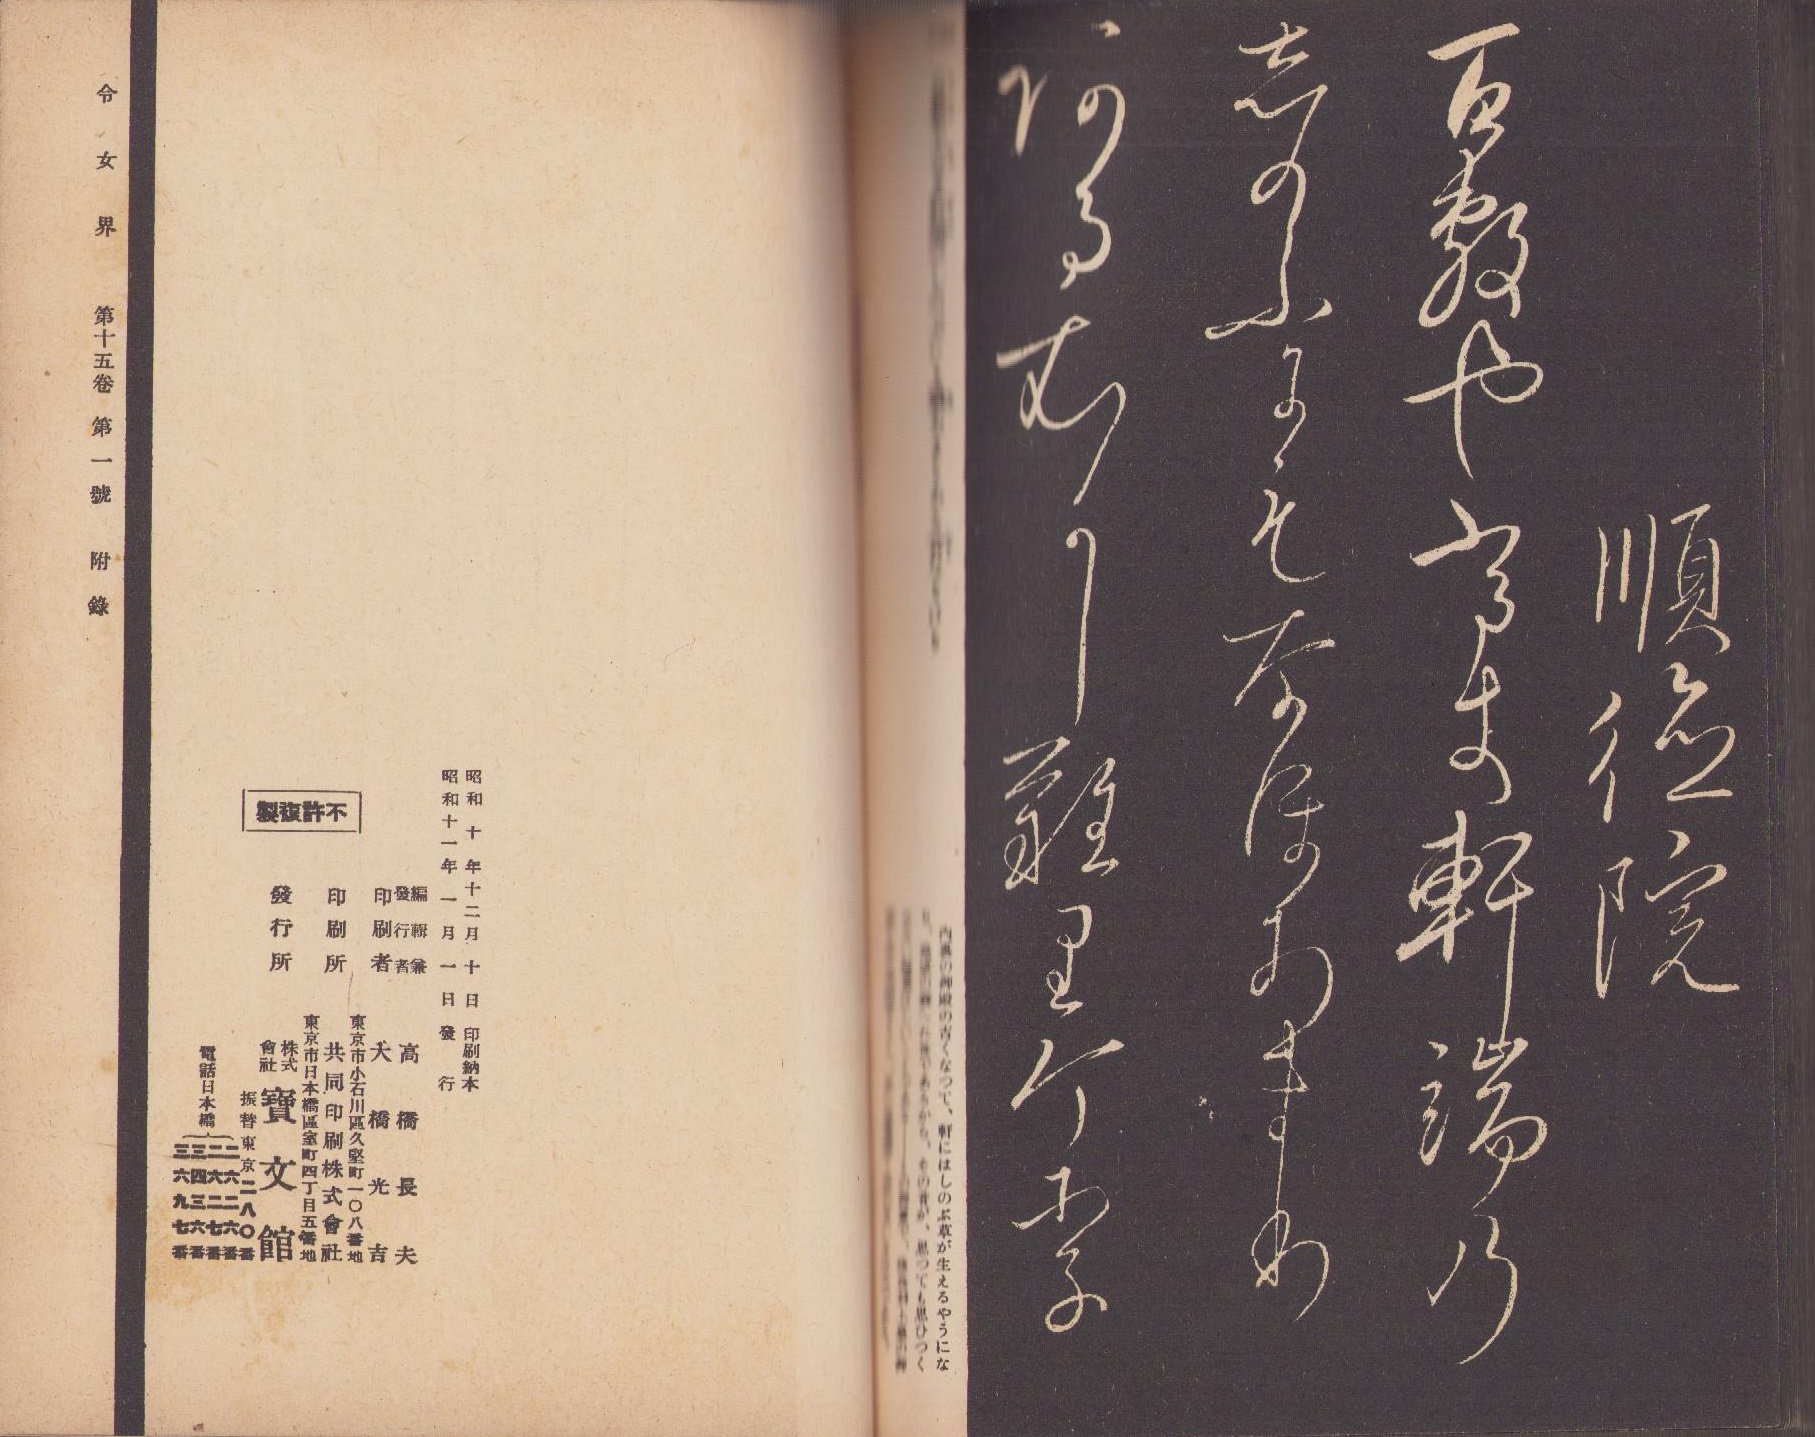 順徳院
百敷やふるき軒端乃
志のふにもなほあまり
阿るむかし難里介李
内裏の御殿の古くなつて、軒にはしのぶ草が生えるやうにな
昭和十年十二月十日印刷納本
昭和十一年一月一日發行
編輯兼發行者 高橋長夫
印刷者 大橋光吉
東京市小石川區久堅町一〇八番地
印刷所 共同印刷株式會社
東京市日本橋區室町四丁目五番地
發行所 株式會社 寶文館
振替東京二八〇番
電話日本橋
二六二六番
二六二七番
三四三六番
三六九七番
不許複製
令女界 第十五卷 第一號 附錄